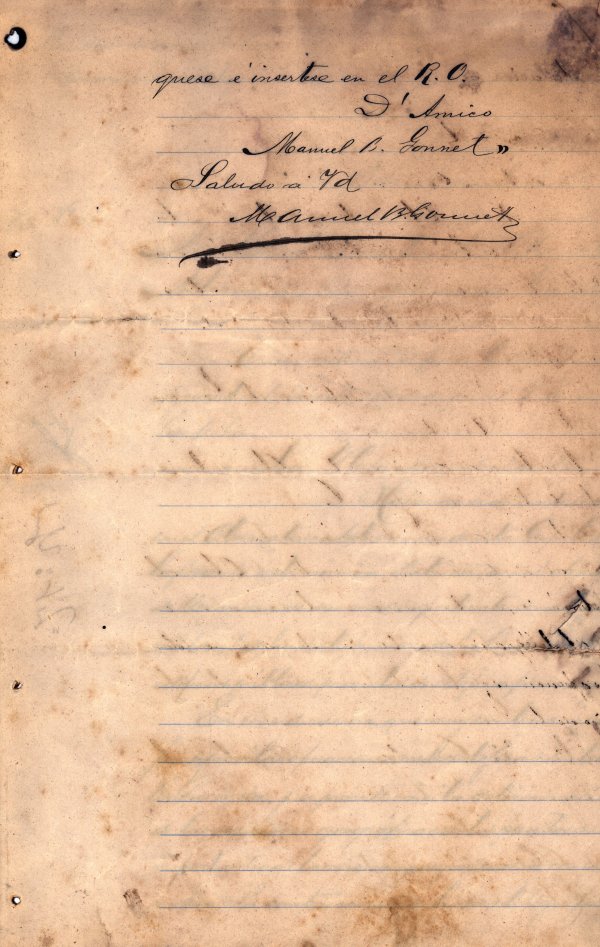 quese é insertese en el R. O.
D' Amico
Manuel B. Gonnet "
Saludo a Vd
Manuel B. Gonnet